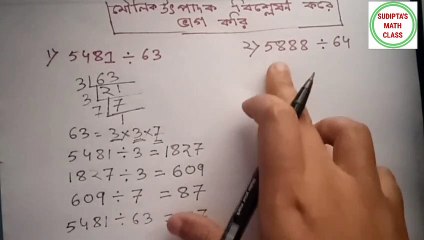 মৌলিক উৎপাদক বিশ্লেষণ করে
ভাগ করি
SUDIPTA'S
MATH
CLASS
১) 5481 ÷ 63
3 63
3 21
7 7
1
63 = 3 × 3 × 7
5481 ÷ 3 = 1827
1827 ÷ 3 = 609
609 ÷ 7 = 87
5481 ÷ 63 = 7
২) 5888 ÷ 64